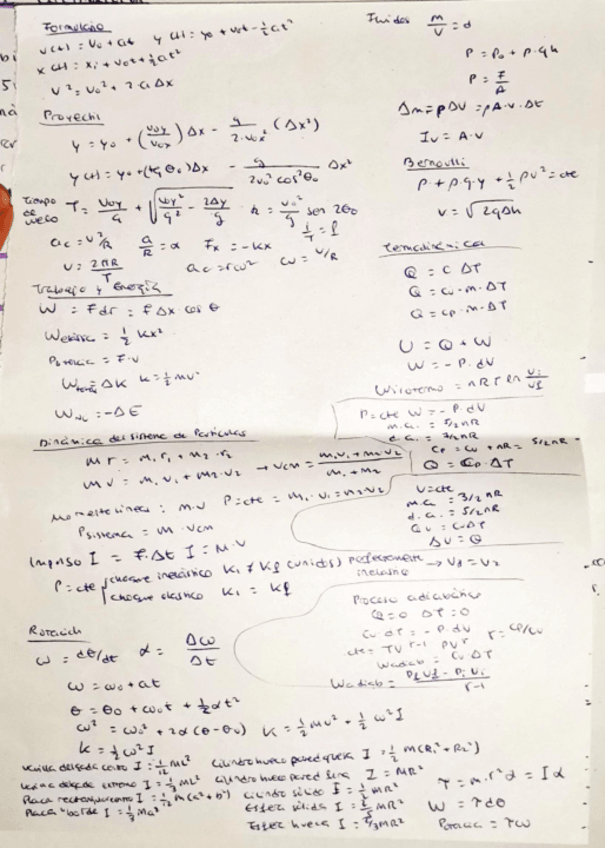 Formulario
v(t) = v₀ + at   y(t) = y₀ + v₀t - ½at²
x(t) = xᵢ + v₀t + ½at²
v² = v₀² + 2·a·Δx
Proyectil
y = y₀ + (v₀y/v₀x) Δx - g/(2·v₀x²) (Δx²)
y(t) = y₀ + (tg θ₀)Δx - g/(2v₀² cos²θ₀) Δx²
Tiempo de vuelo T = v₀y/g + √(v₀y²/g² - 2Δy/g)   R = v₀²/g sen 2θ₀
1/T = f
ac = v²/R   a/R = α   Fx = -kx
v = 2πR/T   ac = rω²   ω = v/R
Trabajo y Energía
W = F dr = F Δx cos θ
Welástica = ½ kx²
Potencia = F·v
W = ΔK   k = ½mv²
W = -ΔE
Dinámica del sistema de Partículas
M r = m₁r₁ + m₂·r₂
M v = m₁v₁ + m₂·v₂ → vcm = (m₁v₁ + m₂v₂)/(m₁ + m₂)
Momento lineal = m·v   P=cte = m₁·v₁ = m₂v₂
Psistema = m·vcm
Impulso I = F·Δt   I = M·v
P = cte choque inelástico Kᵢ ≠ Kf (unidos) perfectamente inelástico → v₁ = v₂
choque elástico Kᵢ = Kf
Rotación
ω = dθ/dt   α = Δω/Δt
ω = ω₀ + αt
θ = θ₀ + ω₀t + ½αt²
ω² = ω₀² + 2α(θ - θ₀)   k = ½mv² + ½ω²I
k = ½ω²I
varilla delgada centro I = 1/12 ML²   cilindro hueco pared gruesa I = ½m(R₁² + R₂²)
varilla delgada extremo I = ⅓ML²   cilindro hueco pared fina I = MR²
Placa rectangular centro I = 1/12 m(a² + b²)   cilindro sólido I = ½MR²
Placa "borde I = ⅓Ma²   Esfera sólida I = MR²
Esfera hueca I = 2/3MR²
τ = m·r²α = Iα
W = τdθ
Potencia = τω
Fluidos   m/V = d
P = P₀ + ρ·gh
P = F/A
Δm = ρΔV = ρA·v·Δt
Iv = A·v
Bernoulli
p + ρ·g·y + ½ρv² = cte
v = √(2gΔh)
Termodinámica
Q = C ΔT
Q = cv·m·ΔT
Q = cp·m·ΔT
U = Q + W
W = -P·dV
Wisotermo = nRT ln Vi/Vf
P=cte   W = -P·dV
m.a. = 5/2nR
d.a. = 7/2nR
Cp = Cv + nR = 5/2nR
Q = Cp·ΔT
V=cte
m.a = 3/2nR
d.a. = 5/2nR
Qv = Cv·ΔT
ΔU = Q
Proceso adiabático
Q=0   ΔT=0
Cv dT = -P·dV   γ = Cp/Cv
cte = TV^γ-1   PV^γ
Wadiab = Cv ΔT
Wadiab = (PfVf - PiVi)/(γ-1)